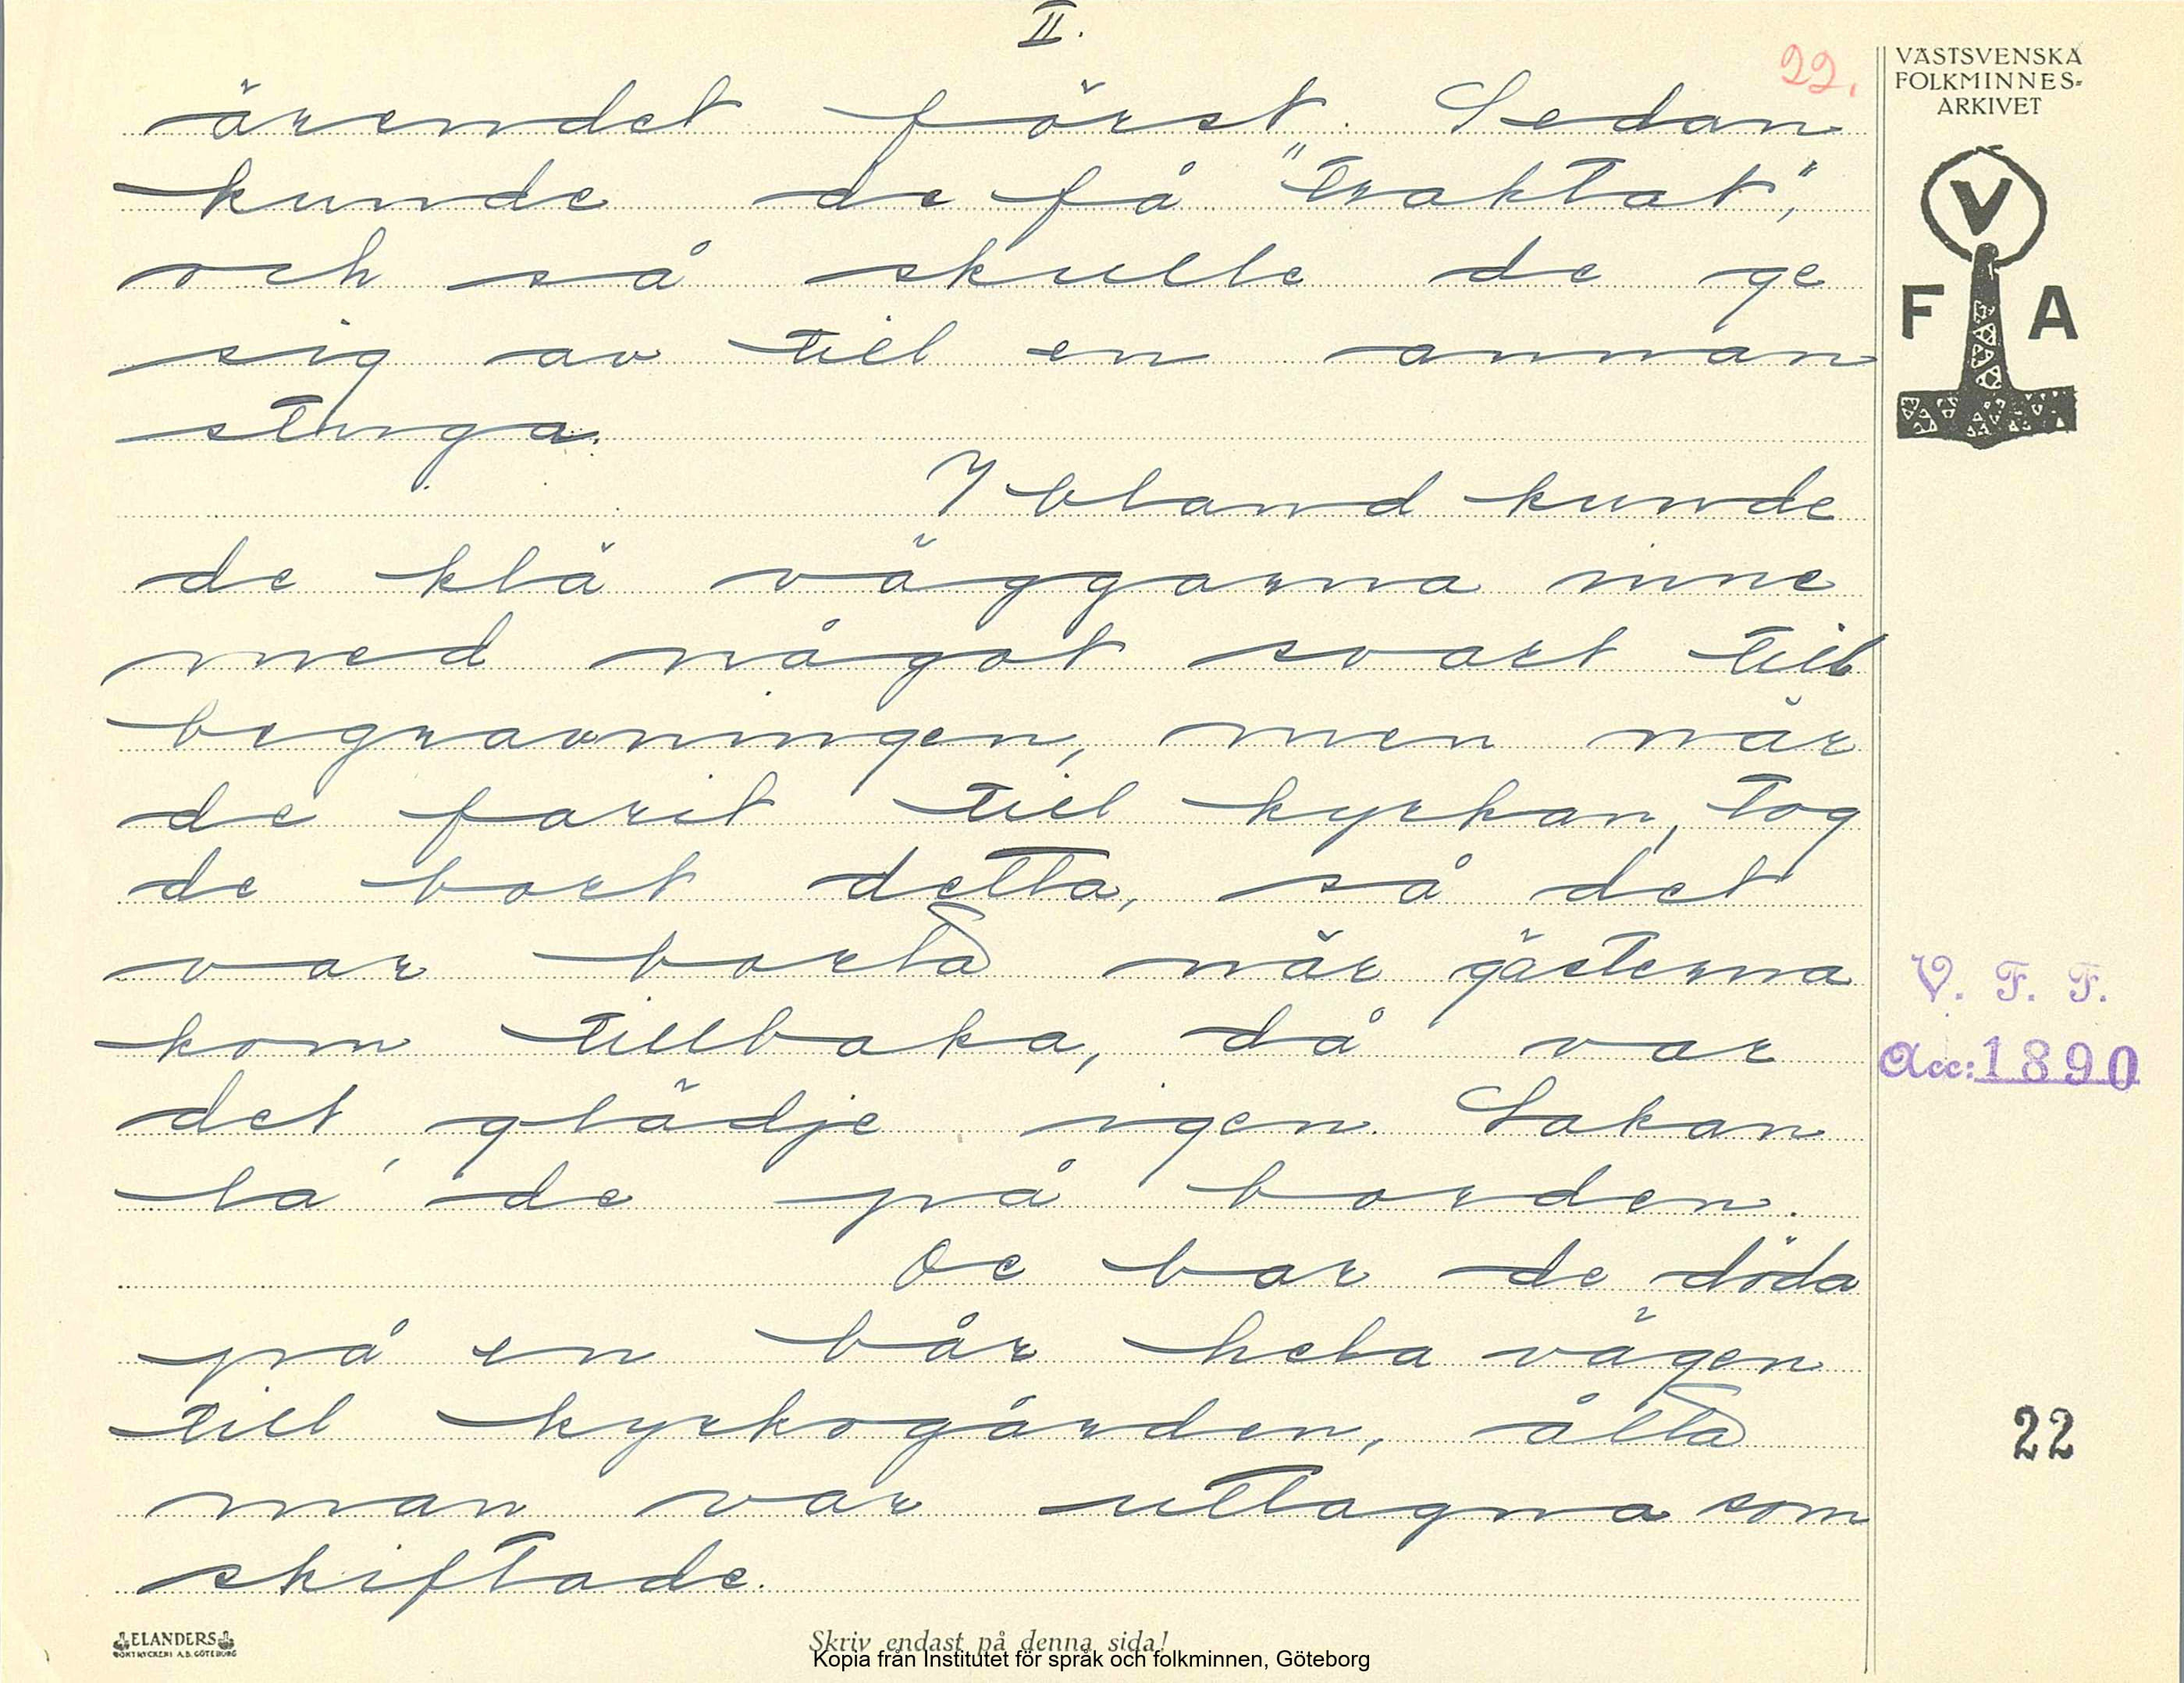 II.
22.
VÄSTSVENSKA
FOLKMINNES-
ARKIVET
V
F A
ärendet först. Sedan
kunde de få "traktat",
och så skulle de ge
sig av till en annan
stuga.
Ibland kunde
de klä väggarna inne
med något svart till
begravningen, men när
de farit till kyrkan, tog
de bort detta, så det
var borta när gästerna
kom tillbaka, då var
det glädje igen. Lakan
la de på borden.
De bar de döda
på en bår hela vägen
till kyrkogården, åtta
man var uttagna som
skiftade.
V. F. F.
Acc: 1890
22
ELANDERS
BOKTRYCKERI A.B. GÖTEBORG
Skriv endast på denna sida!
Kopia från Institutet för språk och folkminnen, Göteborg